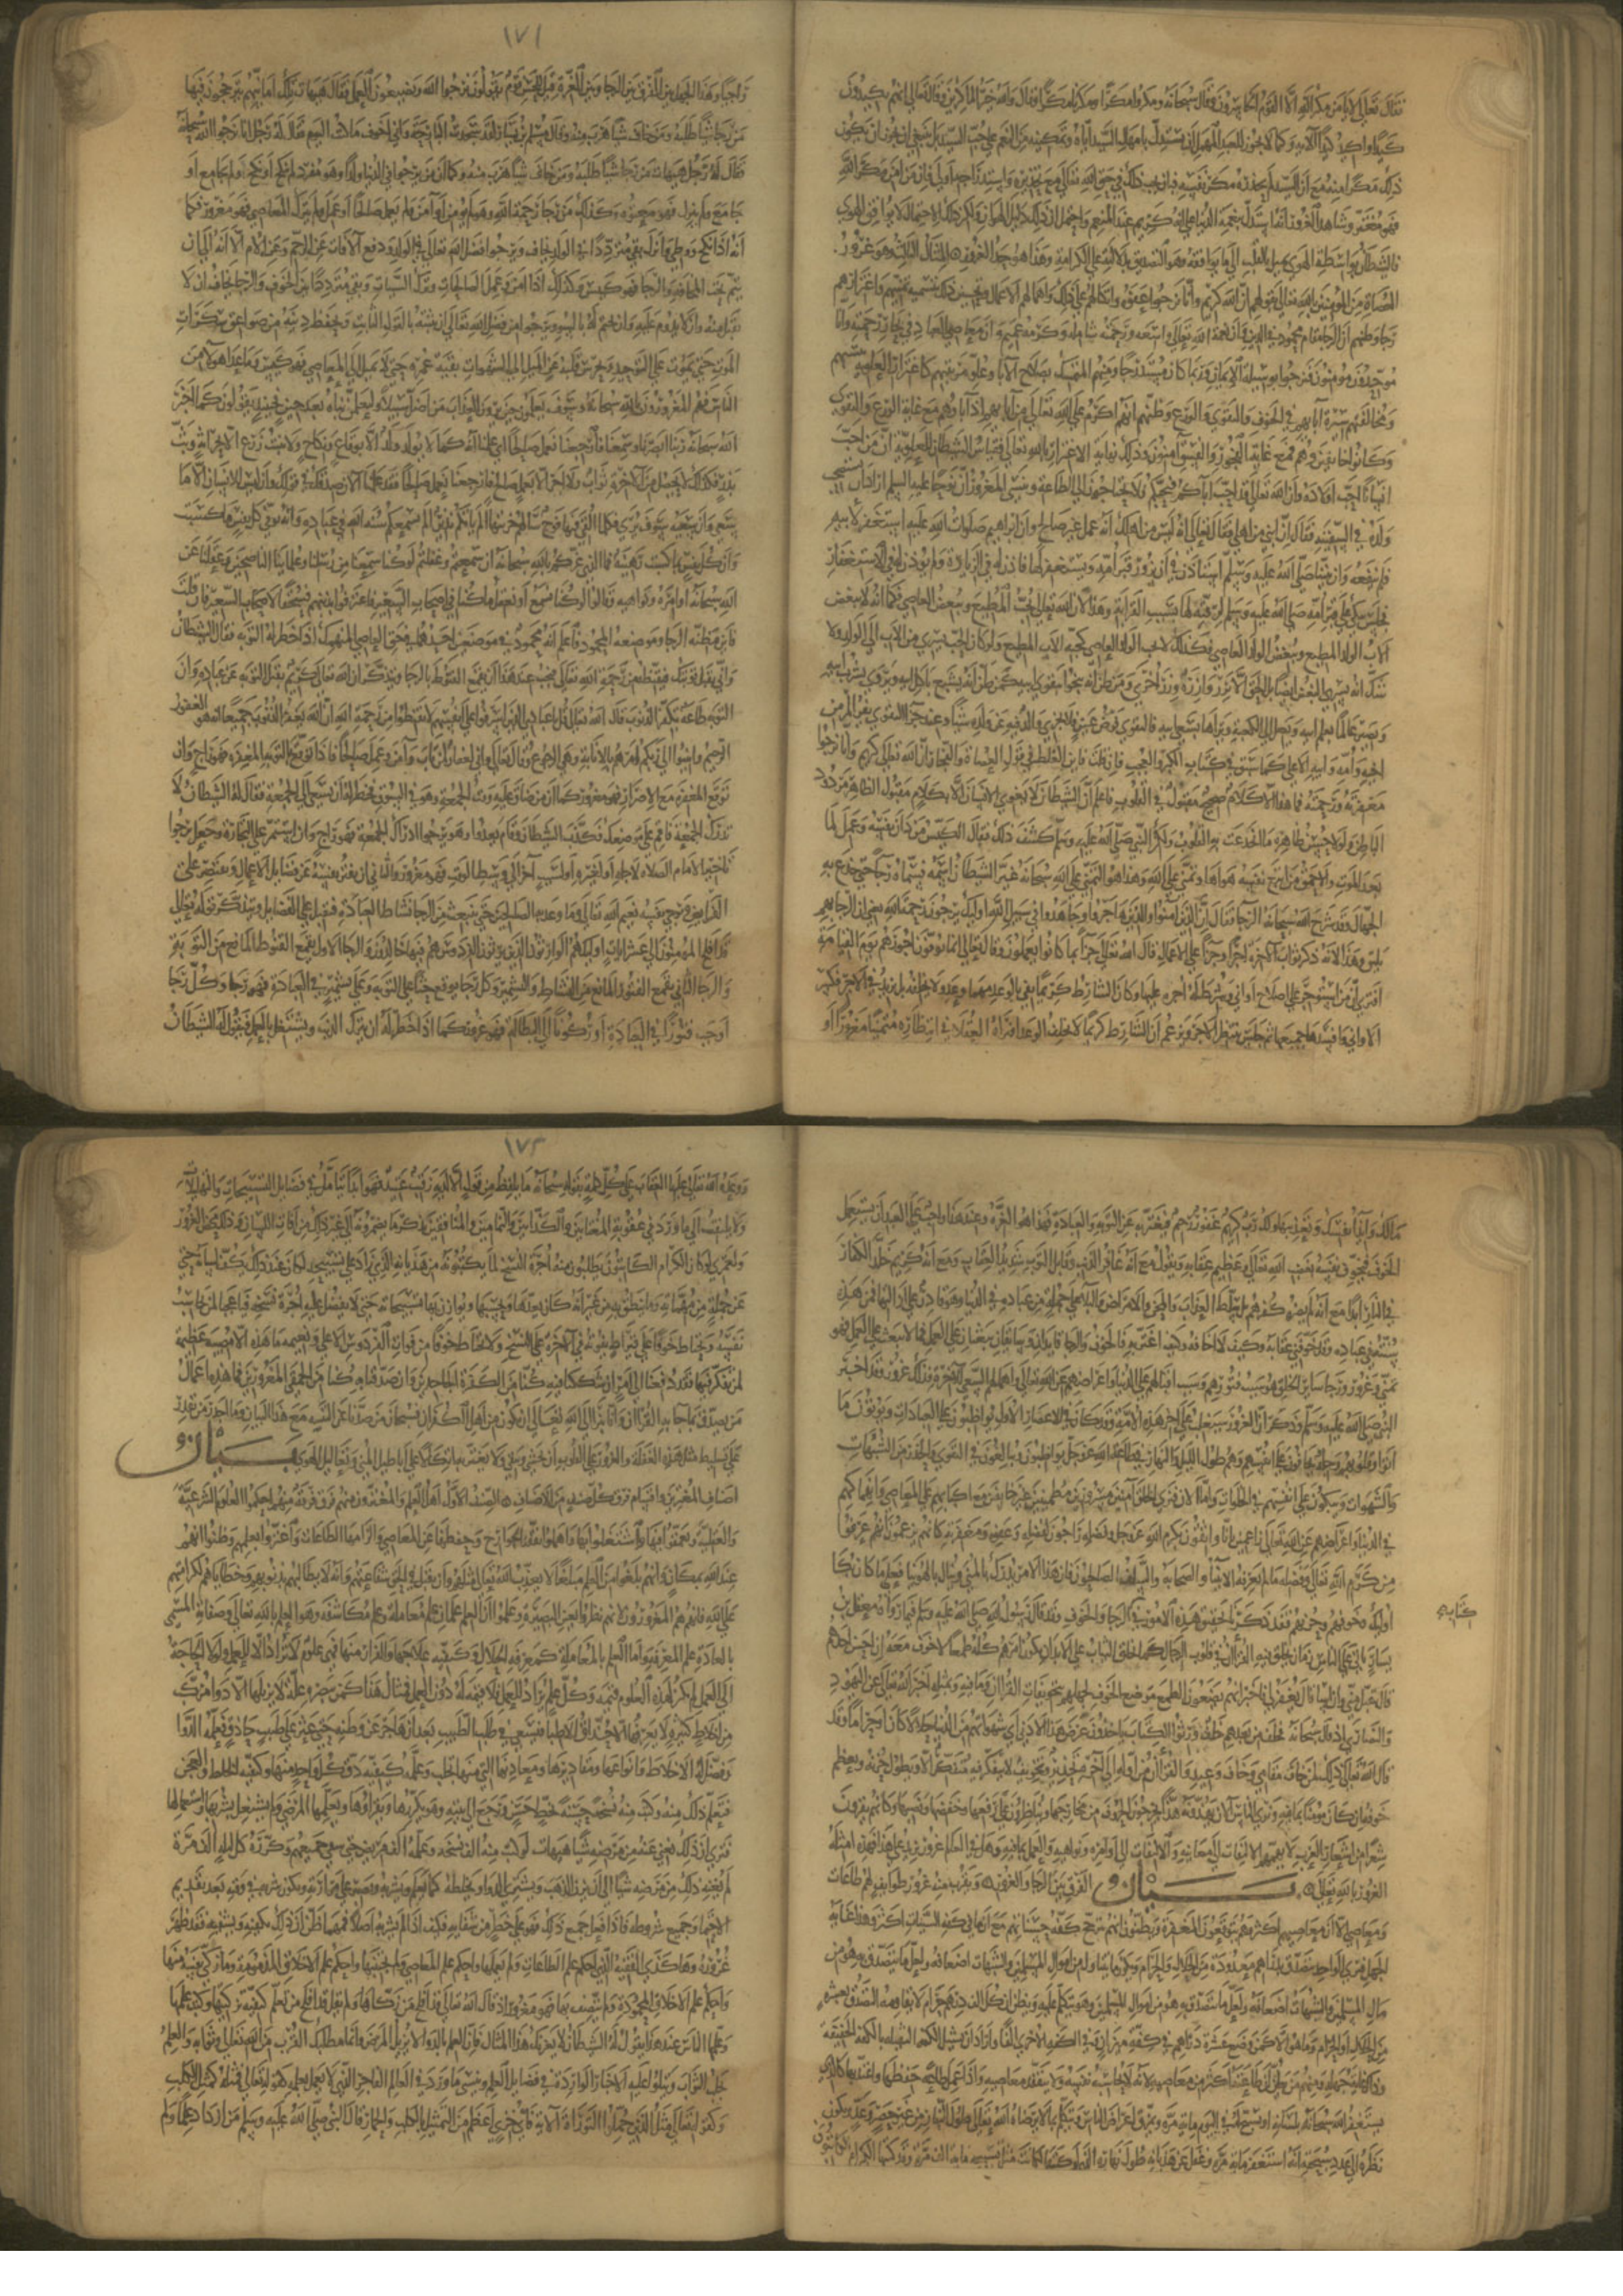 فقال تعالى فلا يأمن مكر الله الا القوم الخاسرون وقال سبحانه ومكروا مكرا ومكرنا مكرا وقال والله خير الماكرين وقال تعالى انهم يكيدون
كيدا واكيد كيدا الآية وكما لا يجوز للعبد المهمل ان يستدل باهمال السيد اياه وتمكينه من النعم على حب السيد بل ينبغي ان يحذر ان يكون
ذلك مكرا منه مع ان السيد لم يحذره مكر نفسه فبان يجب ذلك في حق الله تعالى مع تحذيره واستدراجه اولى فاذن من امن مكر الله
فهو مغتر ومنشأ هذا الغرور انه استدل بنعم الدنيا على انه كريم عند المنعم واحتمل ان ذلك دليل الهوان ولكن ذلك الاحتمال لا يوافق الهوى
فالشيطان بواسطة الهوى يميل بالقلب الى ما يوافقه وهو التصديق بدلالته على الكرامة وهذا هو حد الغرور المثال الثاني وهو غرور
العصاة من المؤمنين بالله تعالى بقولهم ان الله كريم وانا نرجو عفوه واتكالهم على ذلك واهمالهم الاعمال وتحسين ذلك بتسمية تمنيهم واغترارهم
رجاء وظنهم ان الرجاء مقام محمود في الدين وان نعمة الله تعالى واسعة ورحمته شاملة وكرمه عميم واين معاصي العباد في بحار رحمته وانا
موحدون ومؤمنون فنرجوا بوسيلة الايمان وربما كان مستند رجائهم التمسك بصلاح الآباء وعلو رتبتهم كاغترار العلوية بنسبهم
ومخالفتهم سيرة آبائهم في الخوف والتقوى والورع وظنهم انهم اكرم على الله تعالى من آبائهم اذ آباؤهم مع غاية الورع والتقوى
وكانوا خائفين وهم مع غاية الفجور والفسق آمنون وذلك نهاية الاغترار بالله تعالى فقياس الشيطان للعلوية ان من احب
انسانا احب اولاده وان الله تعالى قد احب آباءكم فيحبكم ولا تحتاجون الى الطاعة وينسى المغرور ان نوحا عليه السلم اراد ان يستصحب
ولده في السفينة فقال ان ابني من اهلي فقال تعالى انه ليس من اهلك انه عمل غير صالح وان ابراهيم صلوات الله عليه استغفر لابيه
فلم ينفعه وان نبينا صلى الله عليه وسلم استأذن في ان يزور قبر امه ويستغفر لها فاذن له في الزيارة ولم يؤذن له في الاستغفار
فجلس يبكي على قبر امه صلى الله عليه وسلم لرقته لها بسبب القرابة وهذا لان الله تعالى يحب المطيع ويبغض العاصي فكما انه لا يبغض
الاب الولد المطيع ويبغض الولد العاصي فكذلك لا يحب الولد العاصي كحبه الاب المطيع ولو كان الحب يسري من الاب الى الولد ولا
شك انه يسري البغض ايضا بل الحق الا تزر وازرة وزر اخرى ومن ظن انه ينجوا بتقوى ابيه كمن ظن انه يشبع باكل ابيه ويروى بشرب ابيه
ويصير عالما بعلم ابيه ويصل الى الكعبة ويراها بسعي ابيه فالتقوى فرض عين فلا يجزئ والد فيه عن ولده شيأ وعند جزاء التقوى يفر المرء من
اخيه وامه وابيه كما سبق في كتاب الكبر والعجب فان قلت فاين الغلط في قول العصاة والفجار ان الله تعالى كريم وانا نرجوا
مغفرته ورحمته فما هذا الا كلام صحيح مقبول في القلوب فاعلم ان الشيطان لا يغوي الانسان الا بكلام مقبول الظاهر مردود
الباطن ولولا حسن ظاهره ما انخدعت به القلوب ولكن النبي صلى الله عليه وسلم كشف ذلك فقال الكيس من دان نفسه وعمل لما
بعد الموت والاحمق من اتبع نفسه هواها وتمنى على الله وهذا هو التمني على الله سبحانه غير الشيطان اسمه فسماه رجاء حتى خدع به
الجهال وقد شرح الله سبحانه الرجاء فقال ان الذين آمنوا والذين هاجروا وجاهدوا في سبيل الله اولئك يرجون رحمة الله يعني ان الرجاء بهم
يليق وهذا لانه ذكر ثواب الآخرة اجرا وجزاء على الاعمال قال الله تعالى جزاء بما كانوا يعملون وقال تعالى انما توفون اجوركم يوم القيامة
افترى ان من استؤجر على اصلاح اواني وشرط له اجره عليها وكان الشارط كريما يفي بالوعد مهما وعد ولا يخلف بل يزيد في الاجر فكسر
الاواني وافسدها جميعها ثم جلس ينتظر الاجر ويزعم ان الشارط كريم لا يخلف الوعد افتراه العقلاء في انتظاره متمنيا مغرورا او
١٧١
راجيا وهذا للجهل بين الفرق بين الرجاء وبين الغرة قيل للحسن قوم يقولون نرجوا الله ويضيعون العمل فقال هيهات تلك امانيهم يترجحون فيها
من رجا شيأ طلبه ومن خاف شيأ هرب منه وقال مسلم بن يسار لقد سجدت البارحة فقال له رجل انا نرجوا الله سبحانه
فقال له رجل هيهات من رجا شيأ طلبه ومن خاف شيأ هرب منه وكما ان من يرجوا في الدنيا ولدا وهو مفرد لم ينكح او نكح ولم يجامع او
جامع ولم ينزل فهو معتوه وكذلك من رجا رحمة الله وهو لم يؤمن او آمن ولم يعمل صالحا او عمل ولم يترك المعاصي فهو مغرور فكما
انه اذا نكح ووطئ وانزل بقي مترددا في الولد يخاف ويرجوا فضل الله تعالى في الولد ودفع الآفات عن الرحم وعن الام الى ان
يتم فهو كيس فكذلك اذا آمن وعمل الصالحات وترك السيآت وبقي مترددا بين الخوف والرجاء يخاف ان لا
يقبل منه وان لا يدوم عليه وان يختم له بالسوء ويرجوا من فضل الله تعالى ان يثبته بالقول الثابت ويحفظ دينه من صواعق سكرات
الموت حتى يموت على التوحيد ويحرس قلبه عن الميل الى الشهوات بقية عمره حتى لا يميل الى المعاصي فهو كيس وما عدا هولاء من
الناس فهم المغرورون بالله سبحانه وسوف يعلمون حين يرون العذاب من اضل سبيلا ولتعلمن نبأه بعد حين فعند ذلك يقولون كما اخبر
الله سبحانه ربنا ابصرنا وسمعنا فارجعنا نعمل صالحا اي علمنا انه كما لا يولد ولد الا بوقاع ونكاح ولا ينبت زرع الا بحراثة وبث
بذر فكذلك لا يحصل في الآخرة ثواب ولا اجر الا بعمل صالح فارجعنا نعمل صالحا فقد علمنا الآن صدقك في قولك وان ليس للانسان الا ما
سعى وان سعيه سوف يرى كلما القي فيها فوج سالهم خزنتها الم يأتكم نذير الم نسمعكم سنة الله في عباده وانه توفى كل نفس ما كسبت
وان كل نفس بما كسبت رهينة فما الذي غركم بالله سبحانه بعد ان سمعتم وعقلتم
الله سبحانه اوامره ونواهيه فقالوا لو كنا نسمع او نعقل ما كنا في اصحاب السعير فاعترفوا بذنبهم فسحقا لاصحاب السعير فان قلت
فاين مظنة الرجاء وموضعه المحمود فاعلم انه محمود في موضعين احدهما في حق العاصي المنهمك اذا خطرت له التوبة فقال له الشيطان
وانى تقبل توبتك فيقنطه من رحمة الله تعالى فيجب عند هذا ان يقمع القنوط بالرجا ويتذكر ان الله تعالى كريم يقبل التوبة عن عباده وان
التوبة طاعة تكفر الذنوب قال الله تعالى قل يا عبادي الذين اسرفوا على انفسهم لا تقنطوا من رحمة الله ان الله يغفر الذنوب جميعا انه هو الغفور
الرحيم وانيبوا الى ربكم امرهم بالانابة وقال تعالى واني لغفار لمن تاب وآمن وعمل صالحا فاذا توقع المغفرة مع التوبة فهو راج وان
توقع المغفرة مع الاصرار فهو مغرور كما ان من ضاق عليه وقت الجمعة وهو في السوق فخطر له ان يسعى الى الجمعة فقال له الشيطان لا
تدرك الجمعة فاقم على موضعك فكذب الشيطان فقام يعدوا وهو يرجوا ادراك الجمعة فهو راج وان استمر على التجارة وجعل يرجوا
تأخير الامام الصلاة لاجله او لغيره او لسبب آخر الى وسط الوقت فهو مغرور والثاني ان تفتر نفسه عن فضايل الاعمال ويقتصر على
الفرايض فيرجي نفسه نعيم الله تعالى وما وعد به الصالحين حتى ينبعث من الرجا نشاط العبادة فيقبل على الفضايل ويتذكر قوله تعالى
قد افلح المؤمنون الى عشر آيات اولئك هم الوارثون الذين يرثون الفردوس هم فيها خالدون والرجا الاول يقمع القنوط المانع من التوبة
والرجا الثاني يقمع الفتور المانع من النشاط والتشمر وكل رجا يوقع حثا على التوبة وعلى تشمير في العبادة فهو رجا وكل رجا
اوجب فتورا في العبادة او ركونا الى البطالة فهو غرور كما اذا خطر له ان يترك الذنب ويشتغل بالعمل فيقول له الشيطان
مالك ولايذاء نفسك وتعذيبها ولك رب كريم غفور رحيم فيفتر به عن التوبة والعبادة فهذا هو الغرة وعند هذا واجب على العبد ان يستعمل
الخوف فيخوف نفسه بغضب الله تعالى وعظيم عقابه ويقول مع انه غافر الذنب وقابل التوب شديد العقاب ومع انه كريم خلد الكفار
في النار ابدا مع انه لم يضره كفرهم بل سلط العذاب والمحن والامراض والعلل على جملة من عباده في الدنيا وهو قادر على ازالتها فمن هذه
سنته في عباده وقد خوفني عقابه وكيف لا اخافه وكيف اغتر به فالخوف والرجا قايدان وسايقان يبعثان على العمل فما لا يبعث على العمل فهو
تمني وغرور ورجا ساير الخلق هو سبب فتورهم وسبب اقبالهم على الدنيا واعراضهم عن الله تعالى واهمالهم السعي للآخرة فذلك غرور فقد اخبر
النبي صلى الله عليه وسلم وذكر ان الغرور سيغلب على آخر هذه الامة وقد كان في الاعصار الاول يواظبون على العبادات ويؤتون ما
آتوا وقلوبهم وجلة يخافون على انفسهم وهم طول الليل والنهار في طاعة الله عز وجل يواظبون ويبالغون في التقوى والحذر من الشبهات
والشهوات ويبكون على انفسهم في الخلوات واما الآن فترى الخلق آمنين مسرورين مطمئنين غير خائفين مع اكبابهم على المعاصي وانهماكهم
في الدنيا واعراضهم عن الله تعالى زاعمين انا واثقون بكرم الله عز وجل وفضله راجون لفضله وعفوه ومغفرته كانهم يزعمون انهم عرفوا
من كرم الله تعالى وفضله ما لم يعرفه الانبياء والصحابة والسلف الصالحون فان كان هذا الامر يدرك بالمنى وينال بالهوينا فعلى ما كان بكاء
اولئك وخوفهم وحزنهم وقد ذكرنا تحقيق هذه الامور في كتاب الرجا والخوف وقد قال رسول الله صلى الله عليه وسلم فيما رواه معقل بن
يسار يأتي على الناس زمان يخلق فيه القرآن في قلوب الرجال كما تخلق الثياب على الابدان يكون امرهم كله طمعا لا خوف معه ان احسن احدهم
قال يتقبل مني وان اساء قال يغفر لي فاخبر انهم يضعون الطمع موضع الخوف لجهلهم بتخويفات القرآن وما فيه وبمثله اخبر الله تعالى عن اليهود
والنصارى اذ قال سبحانه فخلف من بعدهم خلف ورثوا الكتاب ياخذون عرض هذا الادنى اي شهواتهم من الدنيا حلالا كان او حراما وقد
قال الله تعالى ذلك لمن خاف مقامي وخاف وعيد والقرآن من اوله الى آخره تحذير وتخويف لا يتفكر فيه متفكر الا ويطول حزنه ويعظم
خوفه ان كان مؤمنا بما فيه وترى الناس يهذونه هذا يخرجون الحروف من مخارجها ويتناظرون على رفعها وخفضها ونصبها وكانهم يقرؤن
شعرا من اشعار العرب لا يهمهم الالتفات الى معانيه والالتفات الى اوامره ونواهيه والعمل بما فيه وهل في العالم غرور يزيد على هذا فهذه امثلة
الغرور بالله تعالى بيان الفرق بين الرجا والغرور ويقرب منه غرور طوايف لهم طاعات
ومعاصي الا ان معاصيهم اكثر وهم يتوقعون المغفرة ويظنون انهم ترجح كفة حسناتهم مع ان ما في كفة السيات اكثر وهذا غاية
الجهل فترى الواحد يتصدق بدراهم معدودة من الحلال والحرام ويكون ما يتناوله من اموال المسلمين والشبهات اضعافه ولعل ما يتصدق به هو من
مال المسلمين والشبهات وهو يتكل عليه ويظن ان اكل الف درهم حرام لا يقاومه التصدق بعشرة
من الحلال او الحرام وما هو الا كمن وضع عشرة دراهم في كفة ميزان وفي الكفة الاخرى الفا واراد ان تشيل الكفة الثقيلة بالكفة الخفيفة
وذلك غاية جهله ومنهم من يظن ان طاعته اكثر من معاصيه لانه لا يحاسب نفسه ولا يتفقد معاصيه واذا عمل طاعة حفظها واعتد بها كالذي
يستغفر الله سبحانه بلسانه او يسبح الله في اليوم ماية مرة ويمزق اعراض الناس ويتكلم بما لا يرضاه الله تعالى طول النهار من غير حصر وعدد ويكون
نظره الى عدد سبحته انه استغفر ماية مرة وغفل عن هذيانه طول نهاره الذي لو كتبه لكان مثل تسبيحه ماية الف مرة وقد كتبها الكرام الكاتبون
كتابه
١٧٢
وقد وعد الله تعالى عليها العقاب على كل كلمة بقوله سبحانه ما يلفظ من قول الا لديه رقيب عتيد فهو ابدا يتأمل في فضايل التسبيحات والتهليلات
ولا يلتفت الى ما ورد في عقوبة المغتابين والكذابين والنمامين والمنافقين الى غير ذلك من آفات اللسان وذلك محض الغرور
ولعمري لو كان الكرام الكاتبون يطلبون منه اجرة النسخ لما يكتبونه من هذيانه الذي زاد على تسبيحه لكان عند ذلك يكف لسانه حتى
عن جملة من مهماته وما نطق به في فتراته كان يعدها ويحسبها ويوازن بها تسبيحاته حتى لا يفضل عليه اجرة نسخه فيا عجبا لمن يحاسب
نفسه ويحتاط خوفا على قيراط يفوته في الاجرة على النسخ ولا يحتاط خوفا من فوات الفردوس الاعلى ونعيمه ما هذه الا مصيبة عظيمة
لمن تفكر فيها فقد دفعنا الى امر ان شككنا فيه كنا من الكفرة الجاحدين وان صدقنا به كنا من الحمقى المغرورين فما هذه اعمال
من يصدق بما جاء به القرآن وانا نبرأ الى الله تعالى ان نكون من اهل الكفران فسبحان من صدنا عن التنبه مع هذا البيان وما اجدر من يقدر
على تسليط مثل هذه الغفلة والغرور على القلوب ان يخشى ويتقى ولا يغتر به اتكالا على اباطيل المنى وتعاليل الهوى بيان
اصناف المغترين واقسام فرق كل صنف من الاصناف الصنف الاول اهل العلم والمغترون منهم فرق ففرقة منهم احكموا العلوم الشرعية
والعقلية وتعمقوا فيها واشتغلوا بها واهملوا تفقد الجوارح وحفظها عن المعاصي والزامها الطاعات واغتروا بعلمهم وظنوا انهم
عند الله بمكان وانهم بلغوا من العلم مبلغا لا يعذب الله تعالى مثلهم بل يقبل في الخلق شفاعتهم وانه لا يطالبهم بذنوبهم وخطاياهم لكرامتهم
على الله فانهم هم المغرورون لانهم لو نظروا بعين البصيرة وعلموا ان العلم علمان علم معاملة وعلم مكاشفة وهو العلم بالله تعالى وصفاته المسمى
بالعادة علم المعرفة واما العلم بالمعاملة كمعرفة الحلال والحرام فهي علوم لا تراد الا للعمل ولولا الحاجة
الى العمل لم يكن لهذه العلوم قيمة وكل علم يراد للعمل فلا قيمة له دون العمل فمثال هذا كمريض به علة لا يزيلها الا دواء مركب
من اخلاط كثيرة لا يعرفها الا حذاق الاطباء فيسعى في طلب الطبيب بعد ان هاجر عن وطنه حتى عثر على طبيب حاذق فعلمه الدواء
وفصل له الاخلاط وانواعها ومقاديرها ومعادنها التي منها تجلب وعلمه كيفية دق كل واحد منها وكيفية الخلط والعجن
فتعلم ذلك منه وكتب منه نسخة حسنة بخط حسن ورجع الى بيته وهو يكررها ويقرؤها ويعلمها المرضى ولم يشتغل بشربها واستعمالها
فترى ان ذلك يغني عنه من مرضه شيأ هيهات لو كتب منه الف نسخة وعلمه الف مريض حتى شفي جميعهم وكرره كل ليلة الف مرة
لم يغنه ذلك من مرضه شيأ الى ان يزن الذهب ويشتري الدواء ويخلطه كما تعلم ويشربه ويصبر على مرارته ويكون شربه في وقته بعد تقديم
الاحتماء وجميع شروطه فاذا فعل جميع ذلك فهو على خطر من شفائه فكيف اذا لم يشربه اصلا فمهما ظن ان ذلك يكفيه ويشفيه فقد ظهر
غروره وهكذا الفقيه الذي احكم علم الطاعات ولم يعملها واحكم علم المعاصي ولم يجتنبها واحكم علم الاخلاق المذمومة وما زكى نفسه منها
واحكم علم الاخلاق المحمودة ولم يتصف بها فهو مغرور اذ قال الله تعالى قد افلح من زكاها ولم يقل قد افلح من تعلم كيفية تزكيتها وكتب علمها
وعلمها الناس عند هذا يقول له الشيطان لا يغرنك هذا المثال فان العلم بالدواء لا يزيل المرض وانما مطلبك القرب من الله تعالى وثوابه والعلم
يجلب الثواب ويتلوا عليه الاخبار الواردة في فضايل العلم وينسى ما ورد في العالم الفاجر الذي لا يعمل بعلمه كقوله تعالى فمثله كمثل الكلب
وكقوله تعالى مثل الذين حملوا التوراة الآية فاي خزي اعظم من التمثيل بالكلب والحمار قال النبي صلى الله عليه وسلم من ازداد علما ولم